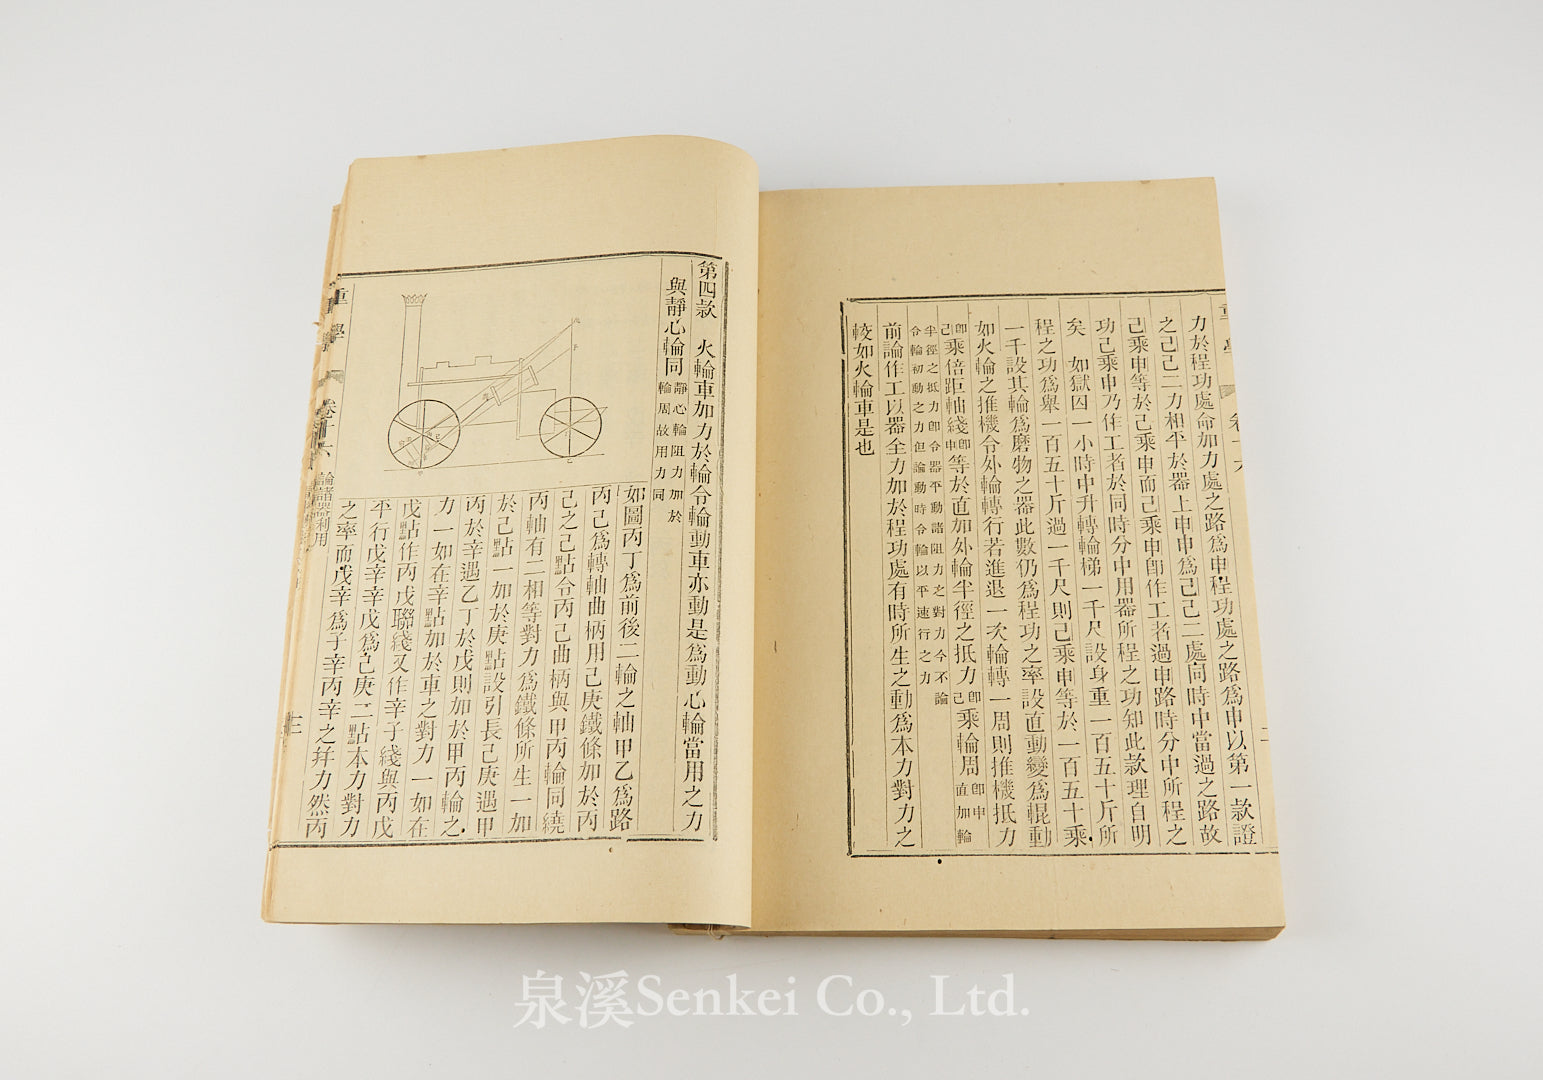 力於程功處命加力處之路爲申程功處之路爲申以第一款證
之己己二力相平於器上申申爲己己二處同時中當過之路故
己乘申等於己乘申而己乘申卽作工者過申路時分中所程之
功己乘申乃作工者於同時分中用器所程之功知此款理自明
矣　如獄囚一小時中升轉輪梯一千尺設身重一百五十斤所
程之功爲舉一百五十斤過一千尺則己乘申等於一百五十乘
一千設其輪爲磨物之器此數仍爲程功之率設直動變爲輥動
如火輪之推機令外輪轉行若進退一次輪轉一周則推機抵力
卽己乘倍距軸綫卽申等於直加外輪半徑之抵力卽己乘輪周卽申直加輪
半徑之抵力卽令器平動諸阻力之對力今不論
令輪初動之力但論動時令輪以平速行之力
前論作工以器全力加於程功處有時所生之動爲本力對力之
較如火輪車是也
重學
卷十六
二
第四款　火輪車加力於輪令輪動車亦動是爲動心輪當用之力
與靜心輪同
靜心輪阻力加於
輪周故用力同
如圖丙丁爲前後二輪之軸甲乙爲路
丙己爲轉軸曲柄用己庚鐵條加於丙
己之己點令丙己曲柄與甲丙輪同繞
丙軸有二相等對力爲鐵條所生一如
於己點一加於庚點設引長己庚遇甲
丙於辛遇乙丁於戊則加於甲丙輪之
力一如在辛點加於車之對力一如在
戊點作丙戊聯綫又作辛子綫與丙戊
平行戊辛辛戊爲己庚二點本力對力
之率而戊辛爲子辛丙辛之幷力然丙
重學
卷十六
論諸器利用
三
泉溪Senkei Co., Ltd.